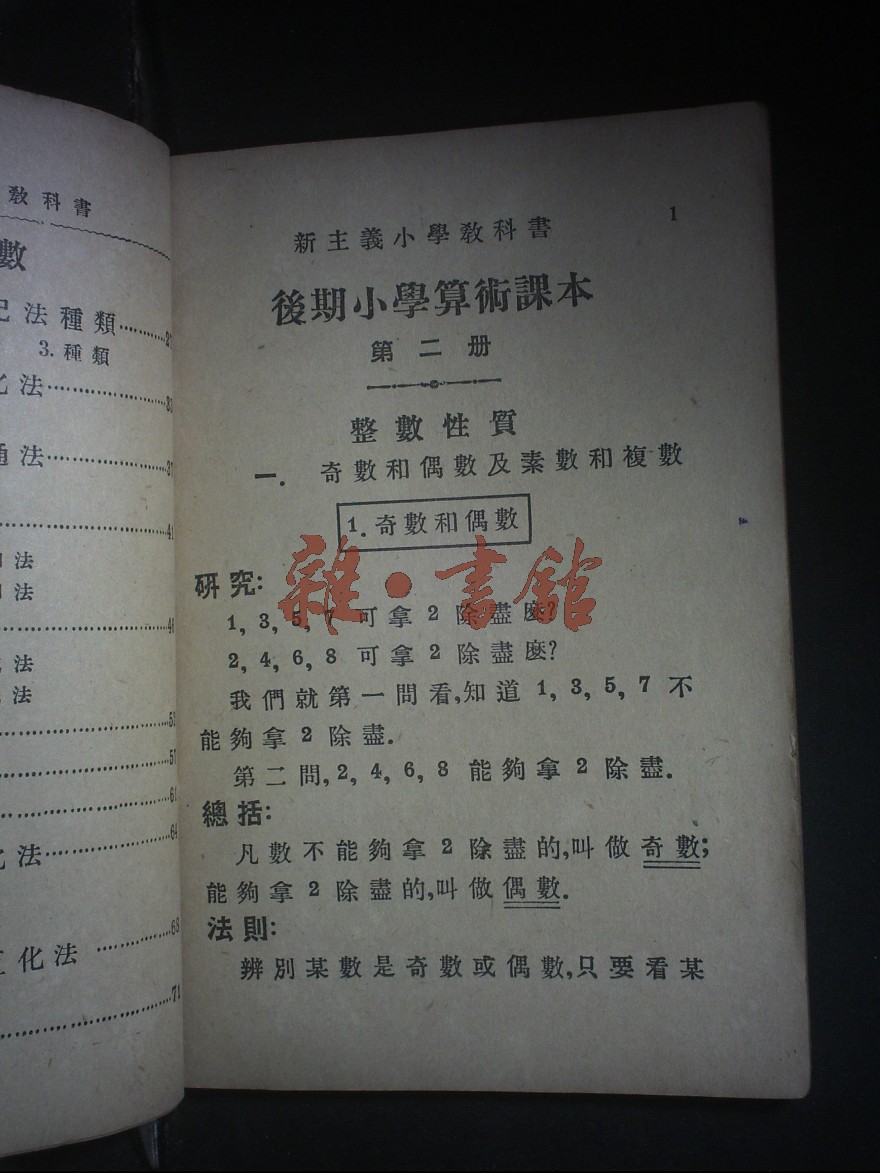 教科書
數
記法種類
3. 種類
化法
通法
41
法
法
46
法
法
57
61
化法 64
化法 68
71
1
新主義小學教科書
後期小學算術課本
第二册
整數性質
一. 奇數和偶數及素數和複數
1. 奇數和偶數
研究:
1, 3, 5, 7 可拿 2 除盡麽?
2, 4, 6, 8 可拿 2 除盡麽?
我們就第一問看,知道 1, 3, 5, 7 不
能夠拿 2 除盡.
第二問, 2, 4, 6, 8 能夠拿 2 除盡.
總括:
凡數不能夠拿 2 除盡的,叫做奇數;
能夠拿 2 除盡的,叫做偶數.
法則:
辨別某數是奇數或偶數,只要看某
雜·書館